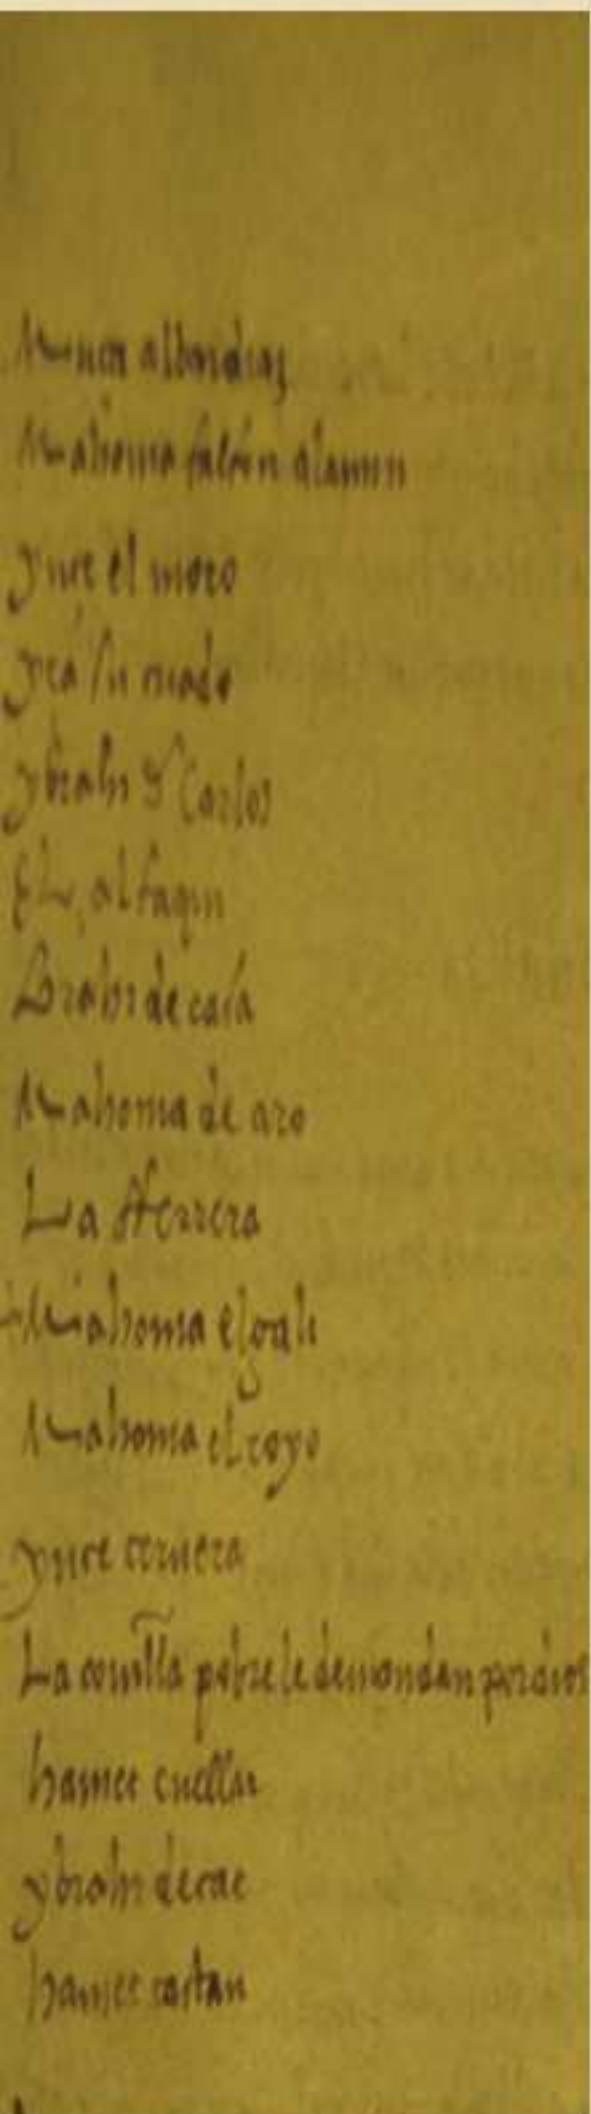 Muça albardiaz
Mahoma faron alamin
yuce el moro
yça su criado
ybrahi de Carlos
El alfaqui
Brahi de casa
Mahoma de aro
La Herrera
Mahoma el gali
Mahoma el royo
yuce
La pobre le demandan por dios
hamet cuellar
ybrahi
hamet